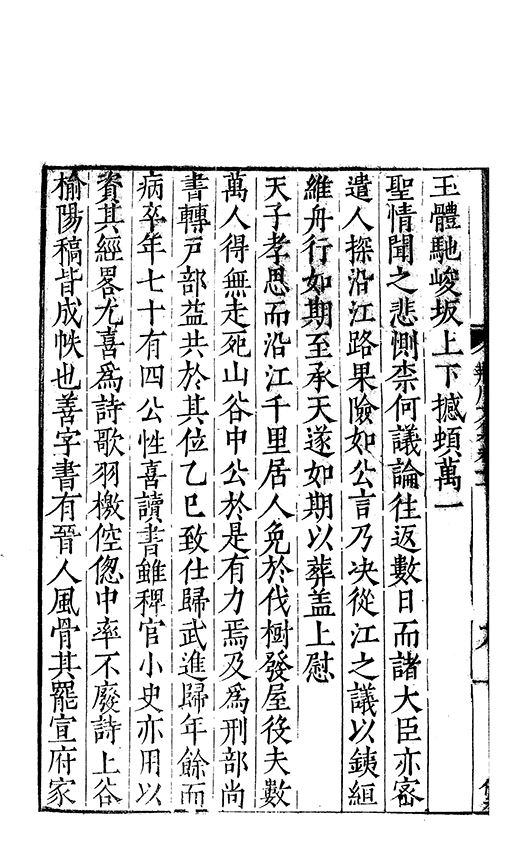 玉體馳峻坂上下撼頓萬一
聖情聞之悲惻柰何議論往返數日而諸大臣亦密
遣人探沿江路果險如公言乃决從江之議以鉄絙
維舟行如期至承天遂如期以葬盖上慰
天子孝思而沿江千里居人免於伐樹發屋役夫數
萬人得無走死山谷中公於是有力焉及爲刑部尚
書轉戸部益共於其位乙巳致仕歸武進歸年餘而
病卒年七十有四公性喜讀書雖稗官小史亦用以
資其經畧尤喜爲詩歌羽檄倥偬中率不廢詩上谷
榆陽稿皆成帙也善字書有晉人風骨其罷宣府家